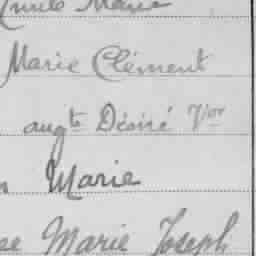 Emile Marie
Marie Clément
augte Désiré Vor
Marie
Marie Joseph